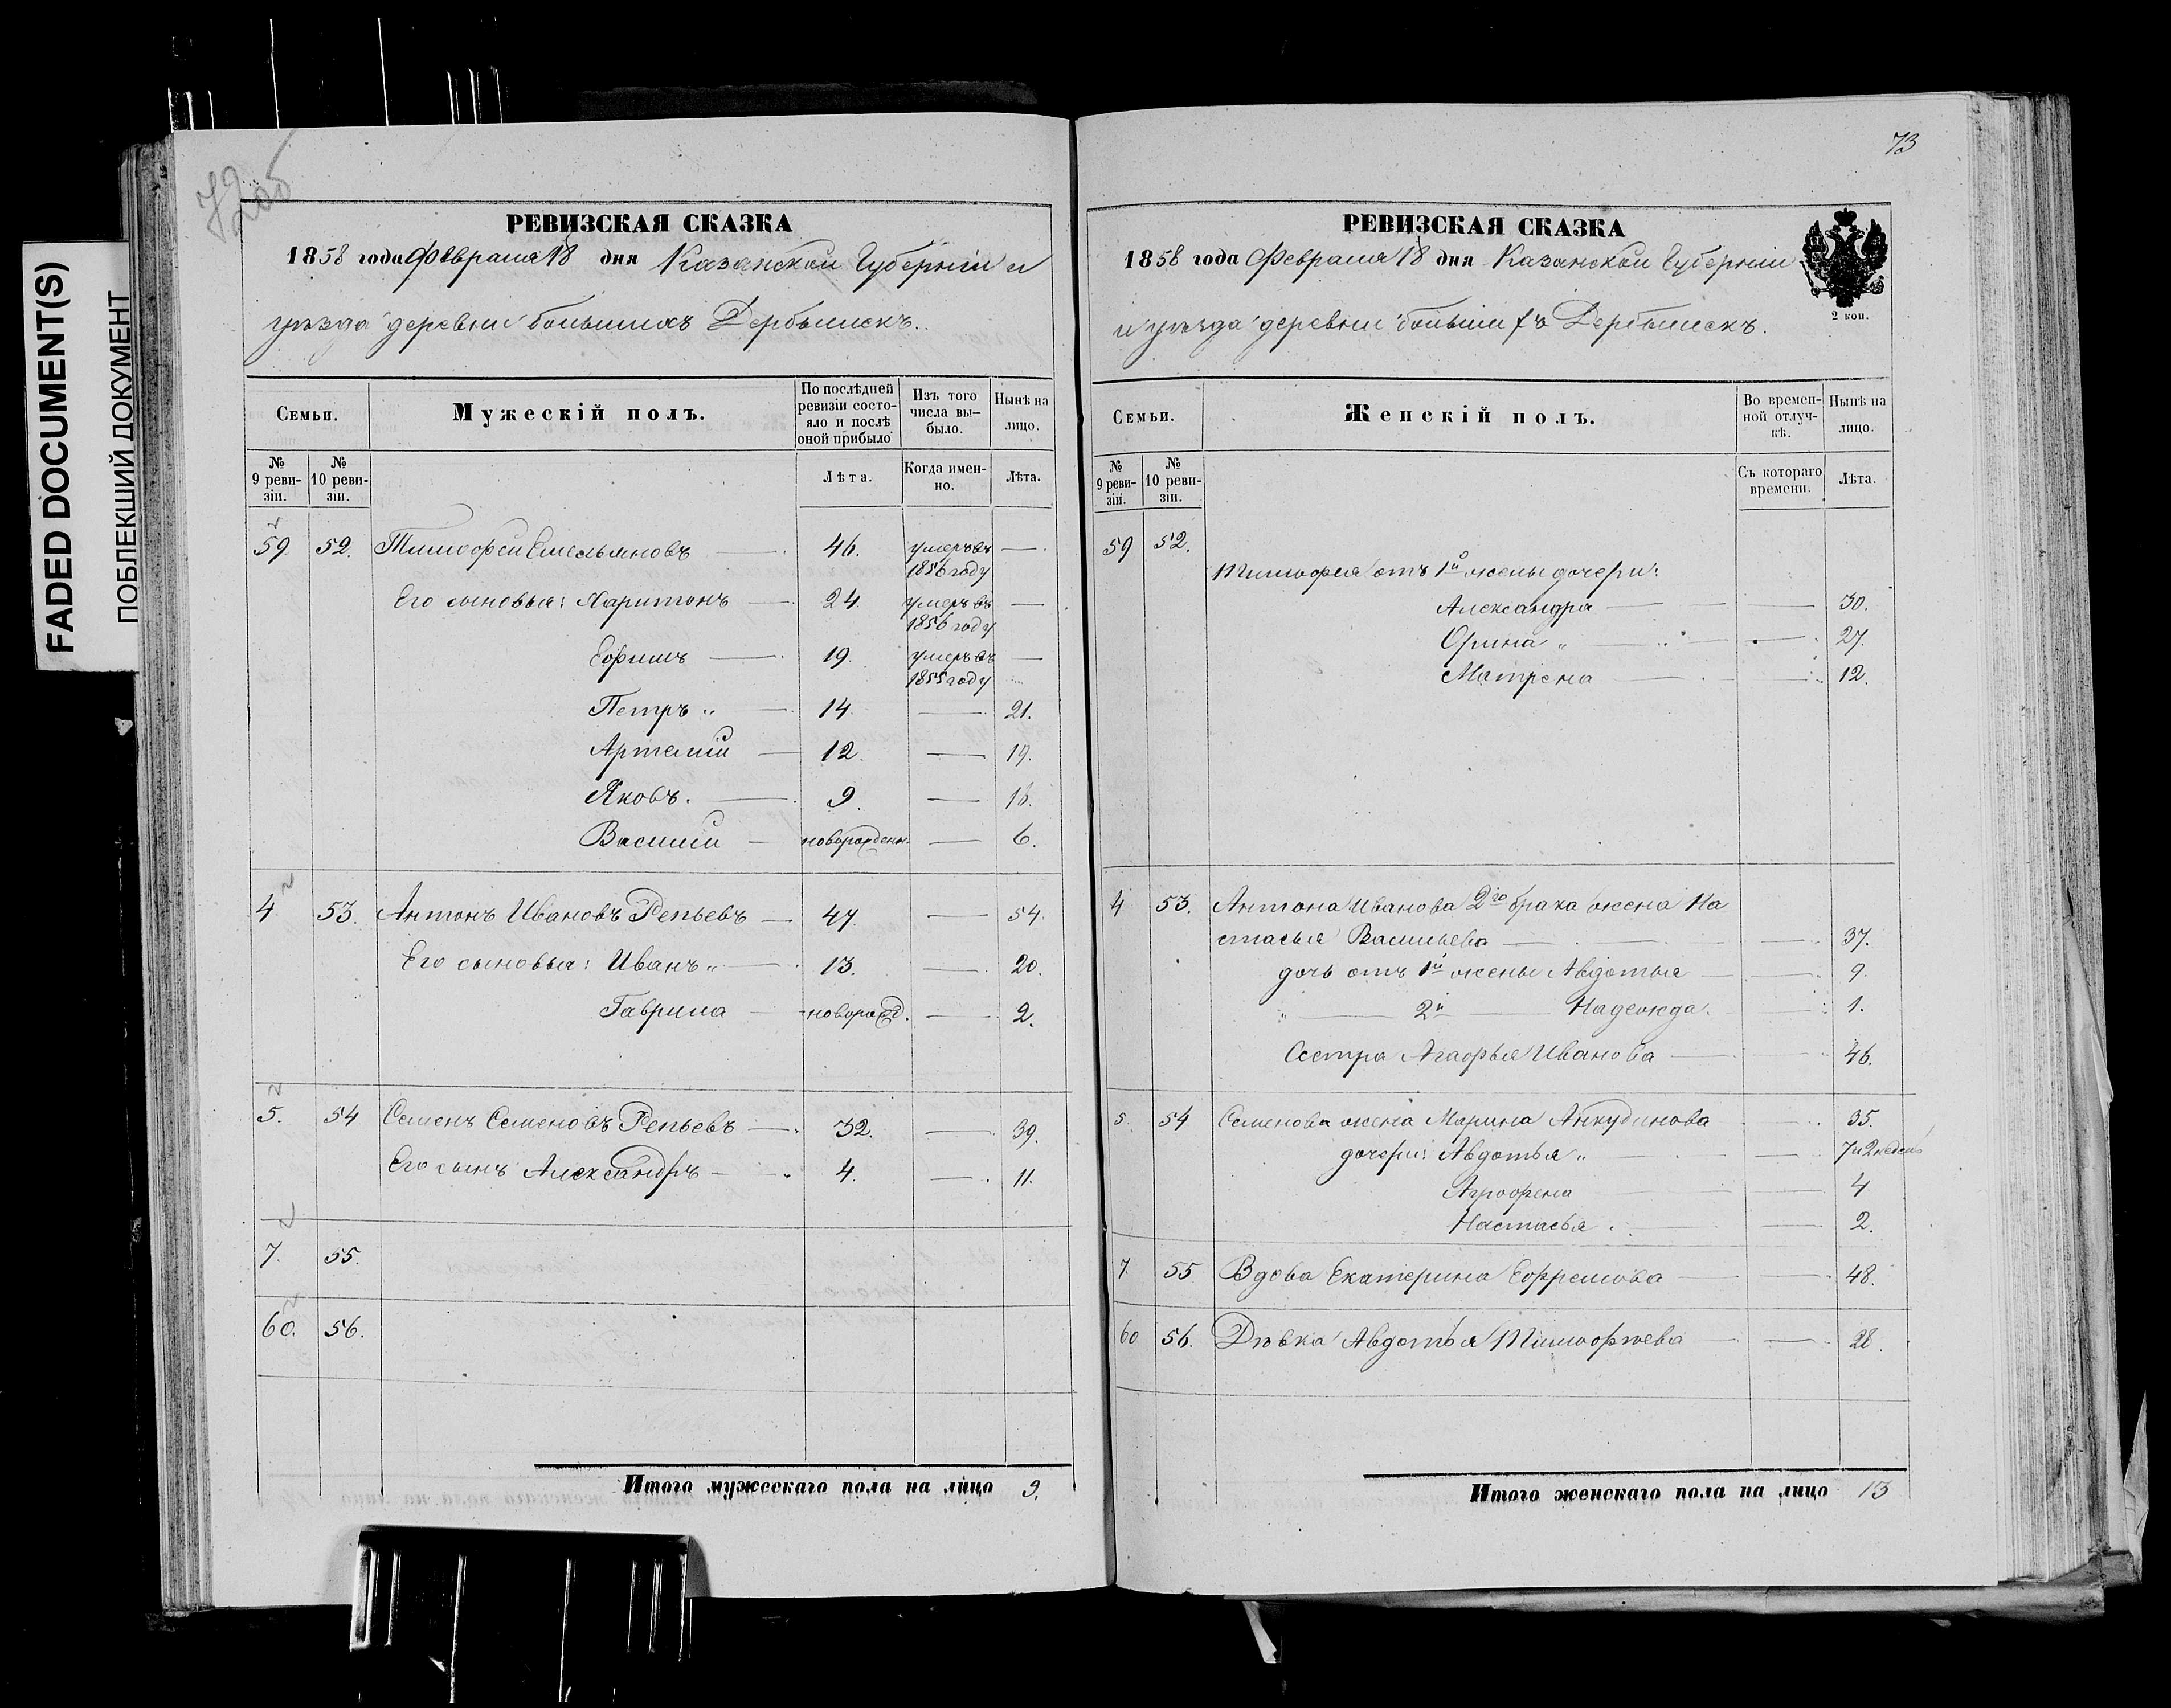 FADED DOCUMENT(S)
ПОБЛЕКШИЙ ДОКУМЕНТ
72об
РЕВИЗСКАЯ СКАЗКА
1858 года Февраля 18 дня Казанской Губерніи и
уѣзда деревни большихъ Дербышекъ.
Семьи.
Мужескій полъ.
По послѣдней ревизіи состо-
яло и послѣ
оной прибыло
Изъ того
числа вы-
было.
Нынѣ на
лицо.
№
9 реви-
зіи.
№
10 реви-
зіи.
Лѣта.
Когда имен-
но.
Лѣта.
59 52. Тимофей Емельяновъ — 46. умеръ въ —
1856 году
Его сыновья: Харитонъ — 24. умеръ въ —
1856 году
Ефимъ — 19. умеръ въ —
1855 году
Петръ „ — 14. — 21.
Артемій — 12. — 19.
Яковъ. — 9. — 16.
Василий — новорожденн. — 6.
4 53. Антонъ Ивановъ Репьевъ — 47. — 54.
Его сыновья: Иванъ „ — 13. — 20.
Гаврила — новорожд. — 2.
5. 54 Семенъ Семеновъ Репьевъ — 32. — 39.
Его сынъ Александръ — 4. — 11.
7. 55.
60. 56.
Итого мужескаго пола на лицо 9.
73
РЕВИЗСКАЯ СКАЗКА
1858 года Февраля 18 дня Казанской Губерніи
и уѣзда деревни большихъ Дербышекъ.
2 коп.
Семьи.
Женскій полъ.
Во времен-
ной отлуч-
кѣ.
Нынѣ на
лицо.
№
9 реви-
зіи.
№
10 реви-
зіи.
Съ котораго
времени.
Лѣта.
59 52.
Тимофея отъ 1й жены дочери:
Александра — — 30.
Орина „ — — 27.
Матрена — — 12.
4 53. Антона Иванова 2го брака жена На
стасья Васильева — — 37.
дочь отъ 1й жены Авдотья — — 9.
„ — 2й — Надежда. — 1.
Сестра Агафья Иванова — — 46.
5 54 Семенова жена Марина Анкудинова — 35.
дочери: Авдотья „ — — 7 и 2 недель
Агрофена — — 4
Настасья. — — 2.
7. 55 Вдова Екатерина Ефремова — — 48.
60 56. Дѣвка Авдотья Тимофѣева — — 28.
Итого женскаго пола на лицо 13